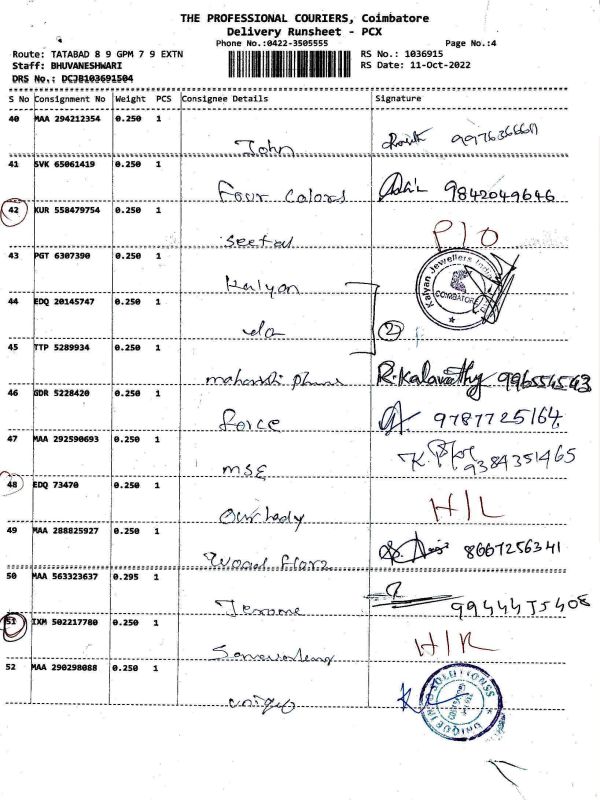 THE PROFESSIONAL COURIERS, Coimbatore
Delivery Runsheet - PCX
Phone No.:0422-3505555
Page No.:4
Route: TATABAD 8 9 GPM 7 9 EXTN
RS No.: 1036915
Staff: BHUVANESHWARI
RS Date: 11-Oct-2022
DRS No.: DCJB103691504
S No Consignment No Weight PCS Consignee Details Signature
40 MAA 294212354 0.250 1
John
41 SVK 65061419 0.250 1
Four Colors 9842049646
42 KUR 558479754 0.250 1
Seetal P/O
43 PGT 6307390 0.250 1
Kalyan Kalyan Jewellers India COIMBATORE
44 EDQ 20145747 0.250 1
do 2
45 TTP 5289934 0.250 1
maharshi R. Kalavathy 996554543
46 GDR 5228420 0.250 1
force 9787725164
47 MAA 292590693 0.250 1
MSE 9384351465
48 EDQ 73470 0.250 1
Our Lady H/L
49 MAA 288825927 0.250 1
Wood 8667256341
50 MAA 563323637 0.295 1
Jerome
51 IXM 502217780 0.250 1
H/R
52 MAA 290298088 0.250 1
unique UNIQUE INFO SOLUTIONSS